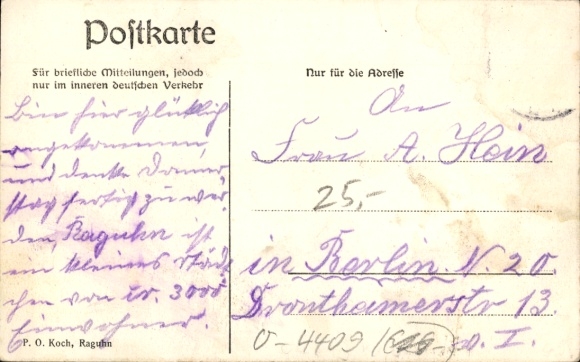 Postkarte
Für briefliche Mitteilungen, jedoch
nur im inneren deutschen Verkehr
Nur für die Adresse
Bin hier glücklich
angekommen,
und denke Donner
stag fertig zu wer
den, Raguhn ist
ein kleines Städt
chen von cr. 3000
Einwohner.
P. O. Koch, Raguhn
An
Frau A. Hein
25,-
in Berlin N. 20.
Dronthamerstr 13.
v. I.
0-4409